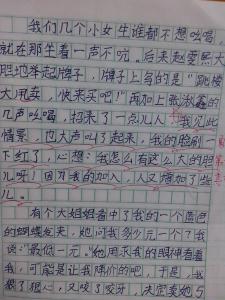 我们几个小女生谁都不想吆喝，
就在那坐着一声不吭。后来赵
大
胆地举起牌子，牌子上写的是“跳楼
大甩卖，快来买吧！”再加上张淑
的
几声吆喝，招来了一点儿人。我见此
情景，也大声叫了起来，我的脸刷一
下红了，心想：我怎么有这么大的胆
儿呀！因为我的加入，人又增加了些
儿。
有个大姐姐看中了我的一个蓝色
的蝴蝶发夹，她问我多少元一个？我
说：“最低一元。”她用求我的眼神看着
我，可能是让我降价的吧，于是，我
狠了狠心，又咬了咬牙，决定卖她5